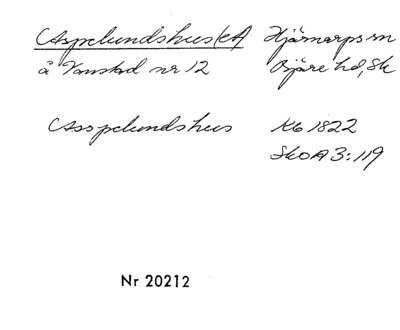 Aspelundshus (eA) Hjärnarps sn
å Vanstad nr 12 Bjäre hd, Sk
Asspelundshus Kb 1822
SkOA 3:119
Nr 20212